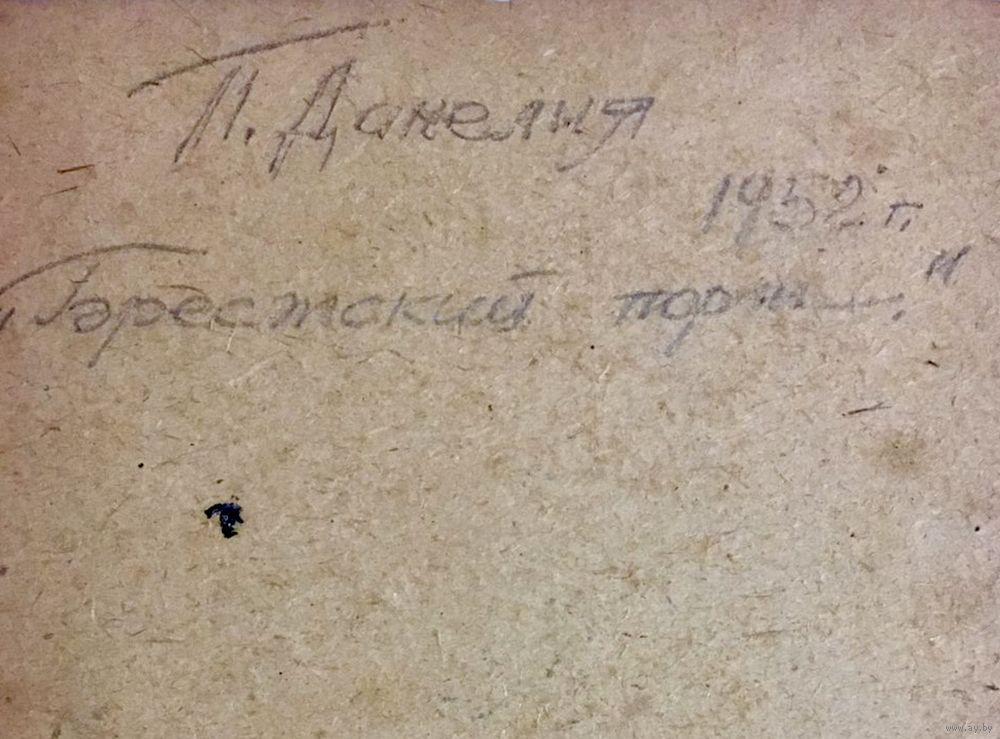 П. Данелия
1952 г.
„Брестский порт."
www.ay.by